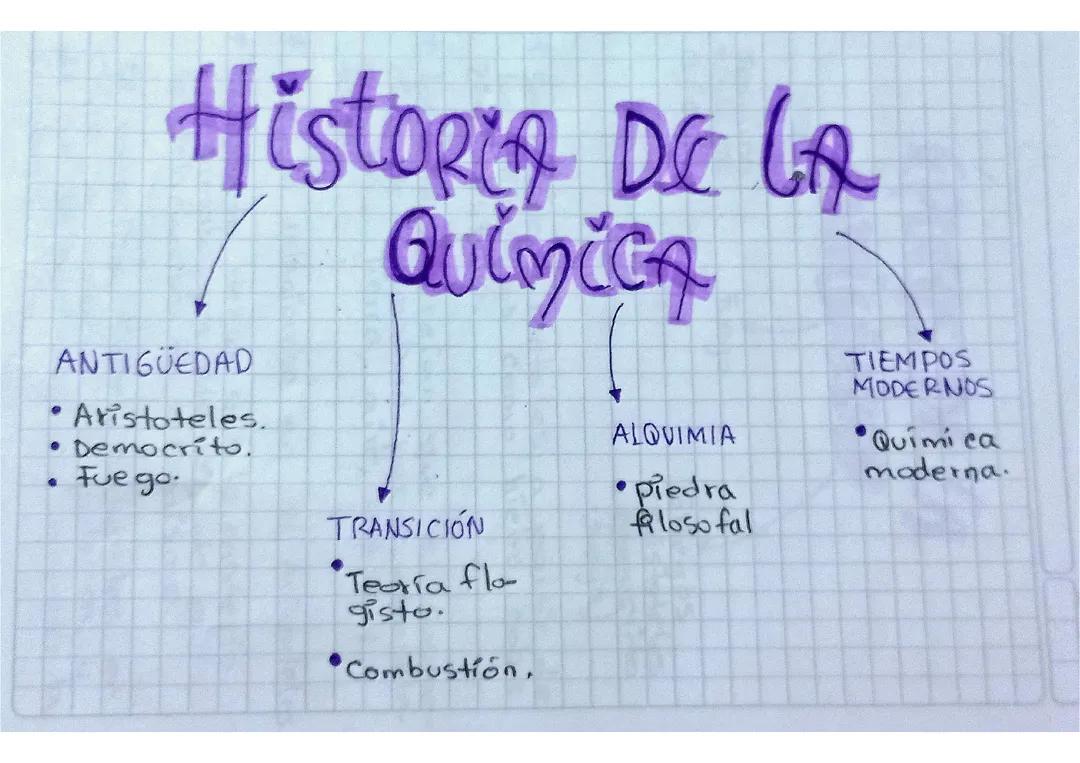 HISTORIA DE LA
QUÍMICA
ANTIGÜEDAD
• Aristoteles.
• Democrito.
• Fuego.
TRANSICIÓN
• Teoría flo-
gisto.
• Combustión.
ALQUIMIA
• piedra
filosofal
TIEMPOS
MODERNOS
• Química
moderna.